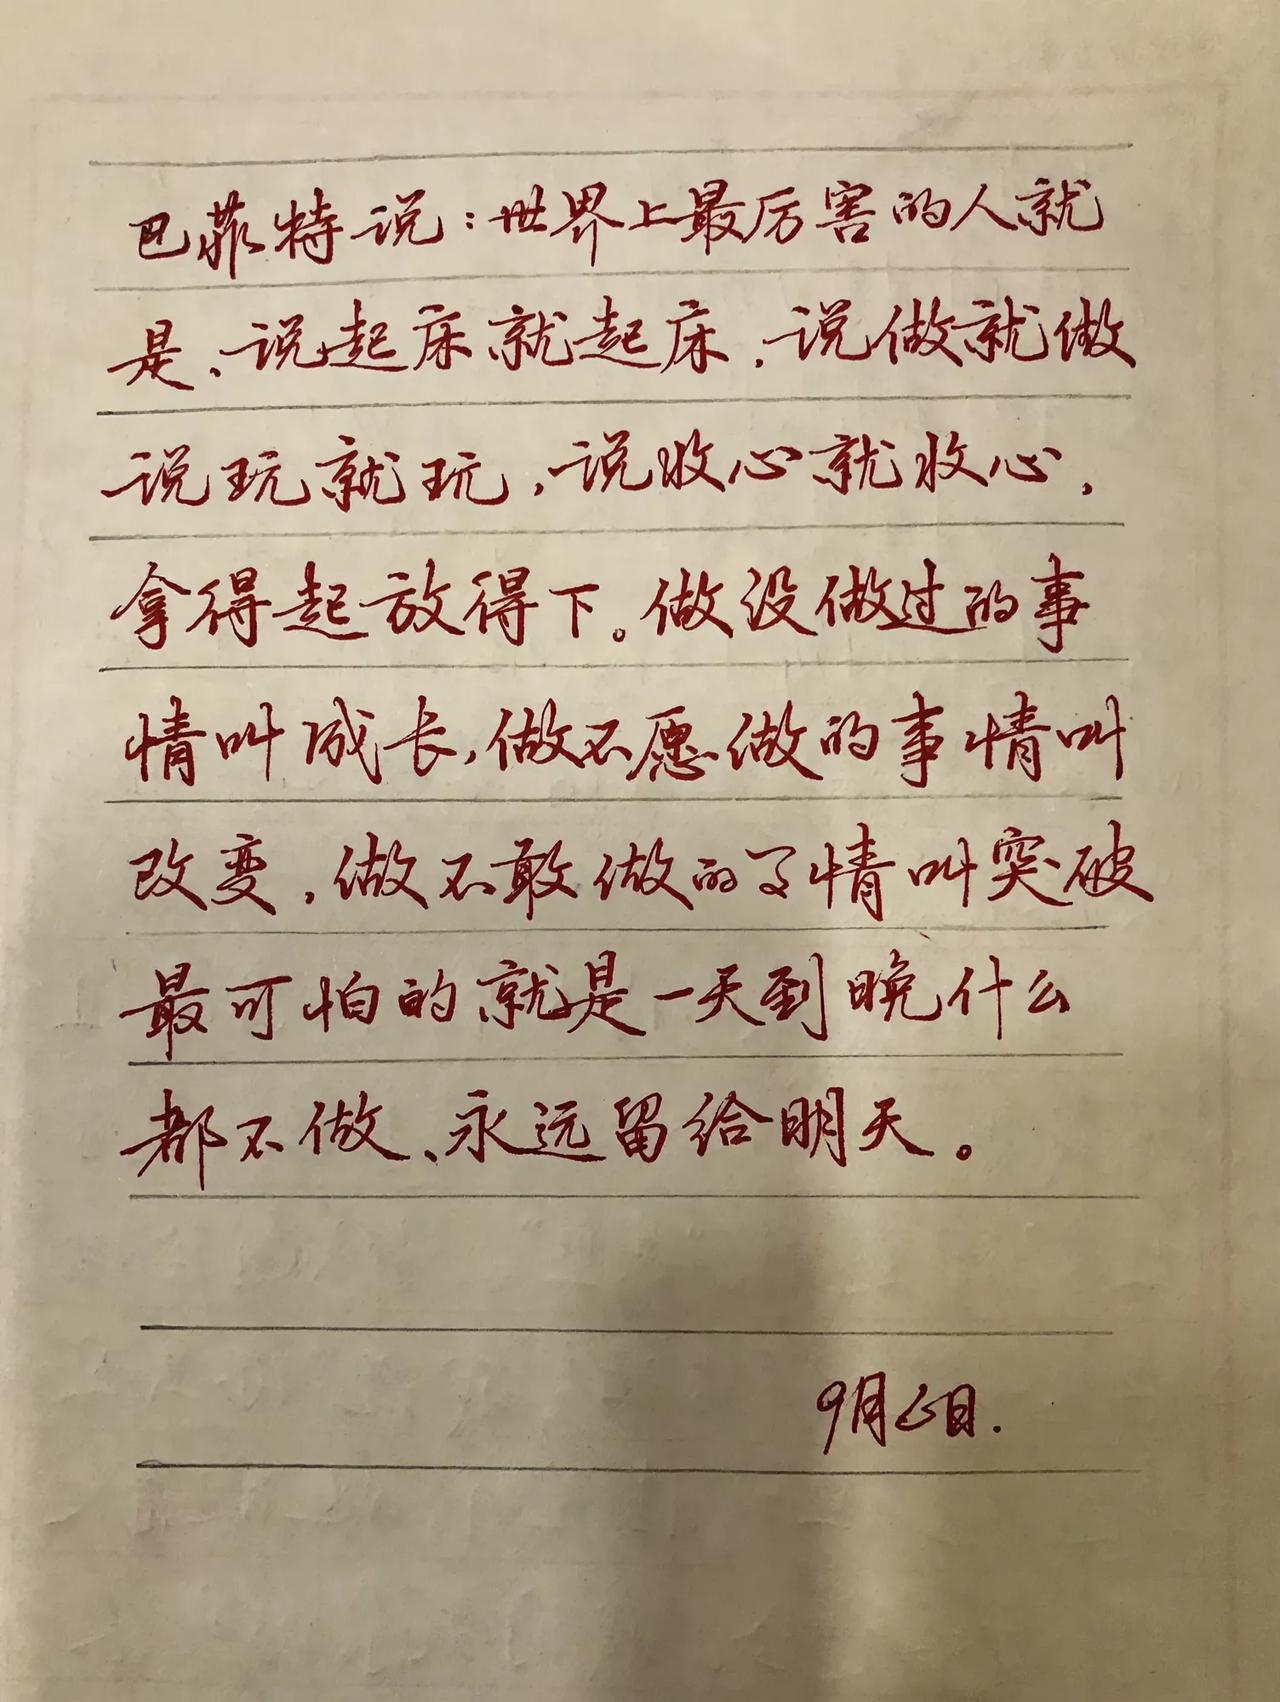 巴菲特说：世界上最厉害的人就
是、说起床就起床，说做就做
说玩就玩，说收心就收心，
拿得起放得下。做没做过的事
情叫成长，做不愿做的事情叫
改变，做不敢做的了情叫突破
最可怕的就是一天到晚什么
都不做、永远留给明天。
9月6日.